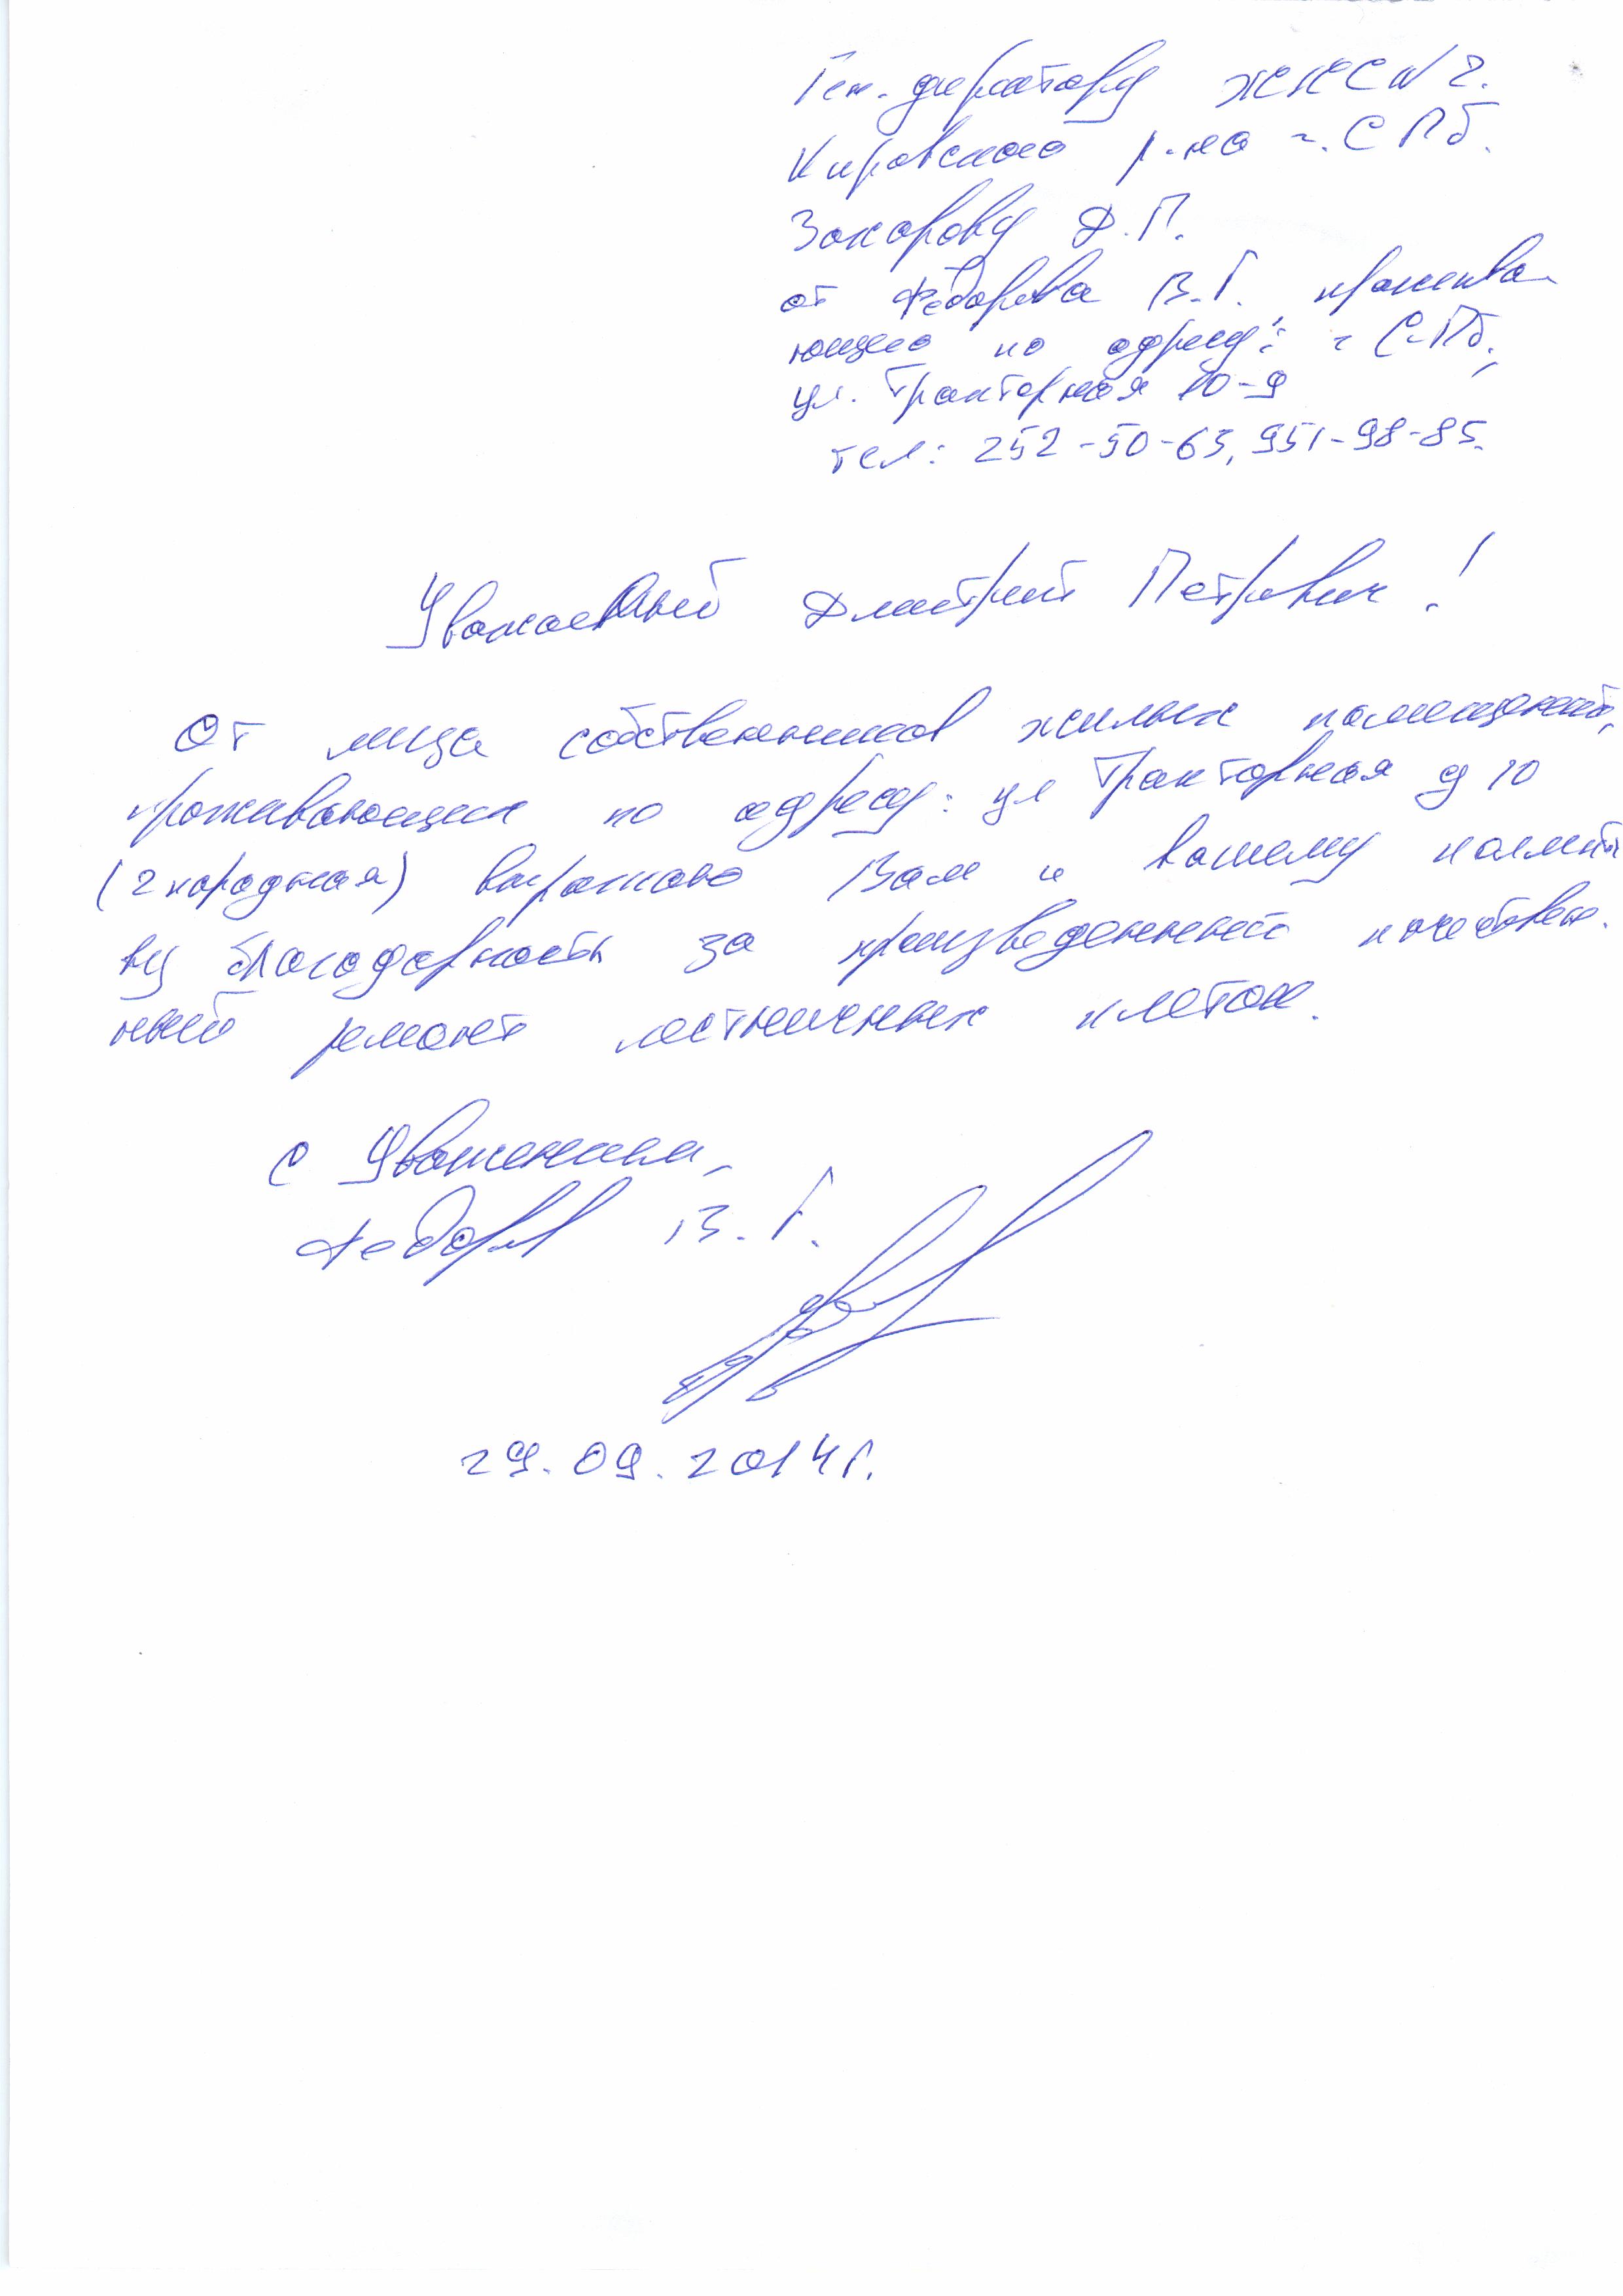 Ген. директору ЖКС N 2.
Кировского р-на г. С Пб.
Захарову Д.П.
от Федорова В.Г. прожива-
ющего по адресу: г С-Пб.,
ул. Тракторная 10-9
тел: 252-50-63, 951-98-85.
Уважаемый Дмитрий Петрович!
От лица собственников жилых помещений,
проживающих по адресу: ул Тракторная д 10
(2 парадная) выражаю Вам и вашему коллекти
ву благодарность за произведенный качествен.
ный ремонт лестничных клеток.
С Уважением,
Федоров В.Г.
29.09.2014г.